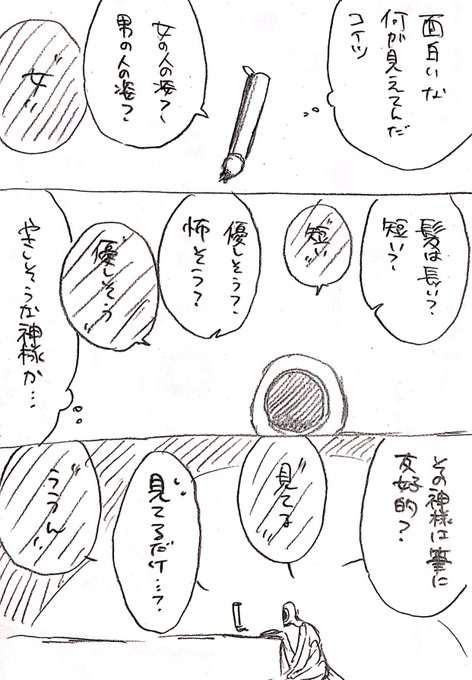 面白いな
何が見えてんだ
コイツ
女の人の姿？
男の人の姿？
女
髪は長い？
短い？
短い
優しそう？
怖そう？
優しそう
やさしそうな神様か…
その神様は筆に
友好的？
見てる
見てるだけ…？
ううん